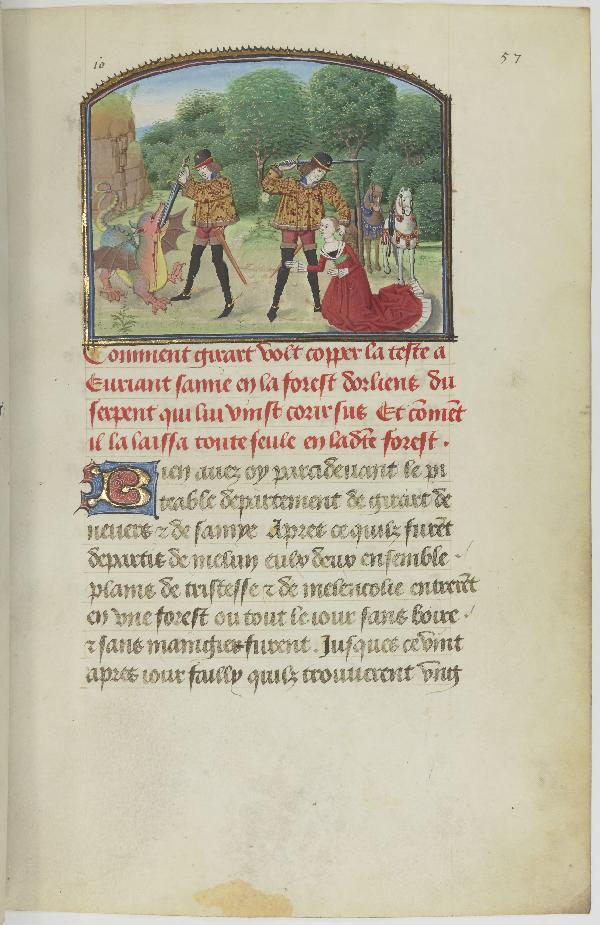 io
57
Comment girart volt copper la teste a
Euriant samie en la forest dorliens du
serpent qui lui vinst corir sus Et comēt
il la laissa toute seule en ladte forest .
Bien auez oy par cidevant le pi
teable departement de girart de
neuers & de samye Apres ce quilz furēt
departis de melun eulx deux ensemble
plains de tristesse & de melencolie entrerēt
en vne forest ou tout le iour sans boire
& sans mangier furent . Jusques ce vint
apres iour failly quilz trouuerent vng